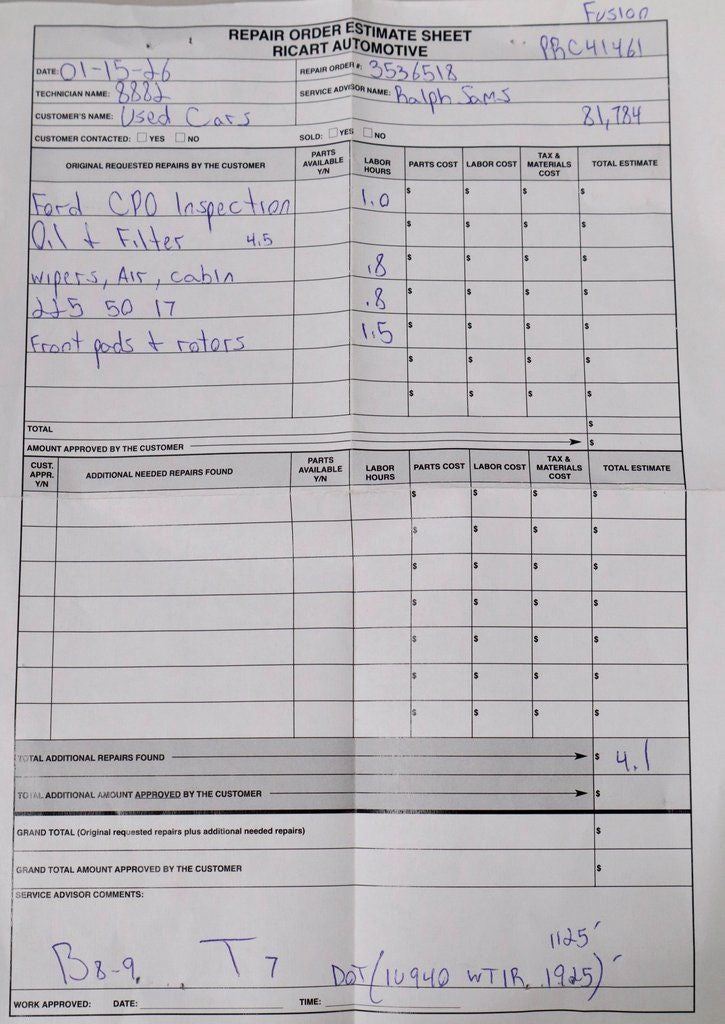 Fusion
REPAIR ORDER ESTIMATE SHEET
RICART AUTOMOTIVE
PRC41461
DATE: 01-15-26 REPAIR ORDER #: 3536518
TECHNICIAN NAME: 8882 SERVICE ADVISOR NAME: Ralph Sams
CUSTOMER'S NAME: Used Cars 81,784
CUSTOMER CONTACTED: YES NO SOLD: YES NO
ORIGINAL REQUESTED REPAIRS BY THE CUSTOMER PARTS AVAILABLE Y/N LABOR HOURS PARTS COST LABOR COST TAX & MATERIALS COST TOTAL ESTIMATE
Ford CPO Inspection 1.0 $ $ $ $
Oil + Filter 4.5 $ $ $ $
wipers, Air, cabin .8 $ $ $ $
225 50 17 .8 $ $ $ $
Front pads + rotors 1.5 $ $ $ $
$ $ $ $
$ $ $ $
TOTAL $
AMOUNT APPROVED BY THE CUSTOMER $
CUST. APPR. Y/N ADDITIONAL NEEDED REPAIRS FOUND PARTS AVAILABLE Y/N LABOR HOURS PARTS COST LABOR COST TAX & MATERIALS COST TOTAL ESTIMATE
$ $ $ $
$ $ $ $
$ $ $ $
$ $ $ $
$ $ $ $
$ $ $ $
$ $ $ $
TOTAL ADDITIONAL REPAIRS FOUND $ 4.1
TOTAL ADDITIONAL AMOUNT APPROVED BY THE CUSTOMER $
GRAND TOTAL (Original requested repairs plus additional needed repairs) $
GRAND TOTAL AMOUNT APPROVED BY THE CUSTOMER $
SERVICE ADVISOR COMMENTS:
1125'
B 8-9 T 7 DOT (1U940 WT1R 1925)'
WORK APPROVED: DATE: TIME: